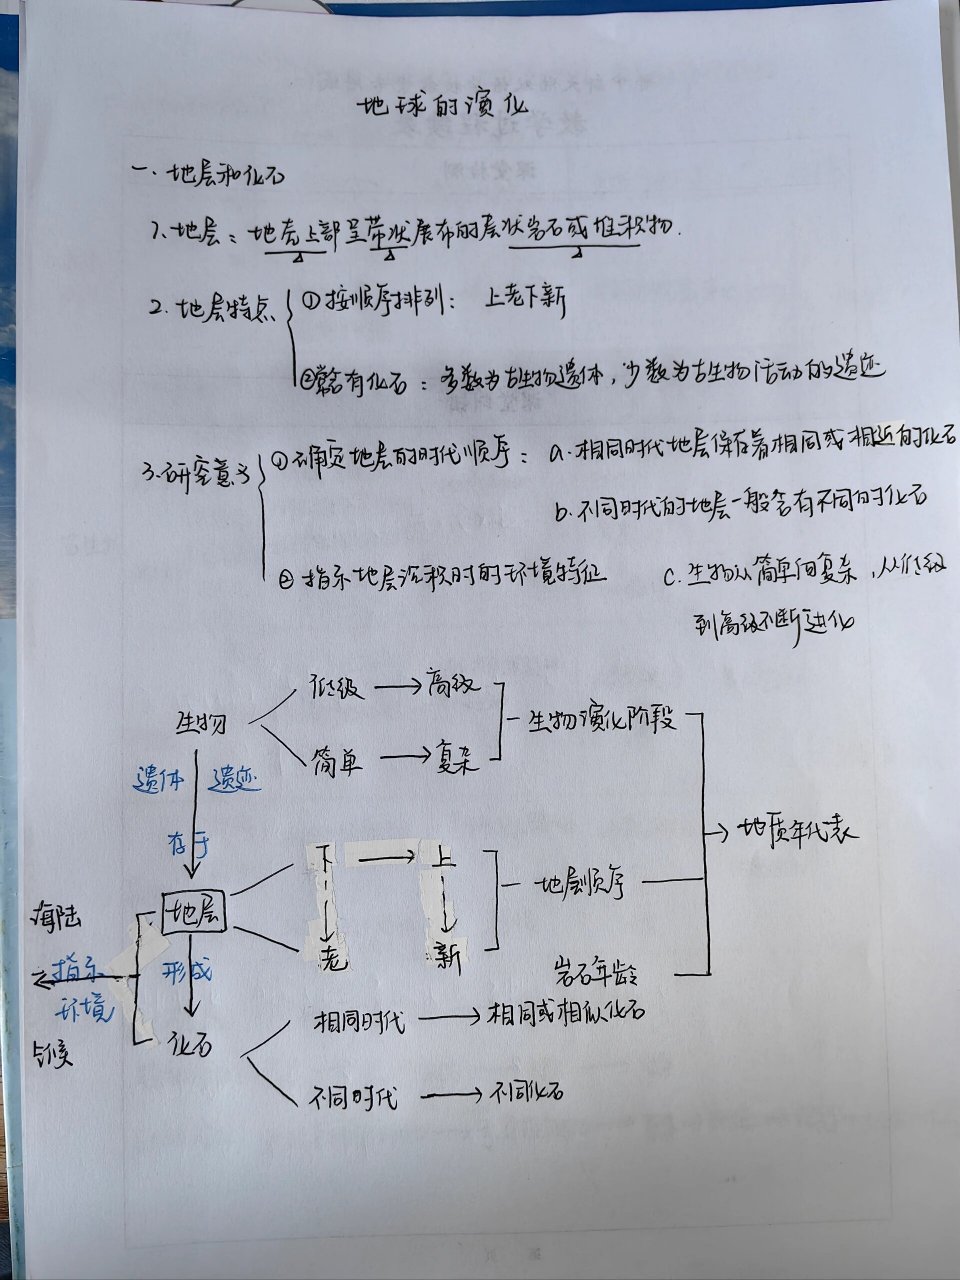 地球的演化
一. 地层和化石
1. 地层：地壳上部呈带状展布的层状岩石或堆积物.
2. 地层特点
①按顺序排列： 上老下新
②常含有化石：多数为古生物遗体，少数为古生物活动的遗迹
3. 研究意义
①确定地层的时代顺序： a. 相同时代地层保存着相同或相近的化石
b. 不同时代的地层一般含有不同的化石
② 指示地层沉积时的环境特征 c. 生物从简单向复杂，从低级
到高级不断进化
低级 → 高级
生物 生物演化阶段
简单 → 复杂
遗体 遗迹
存于
地质年代表
下 → 上
地层 地层顺序
海陆
老 新
指示 形成 岩石年龄
环境
相同时代 → 相同或相似化石
化石
气候
不同时代 → 不同化石